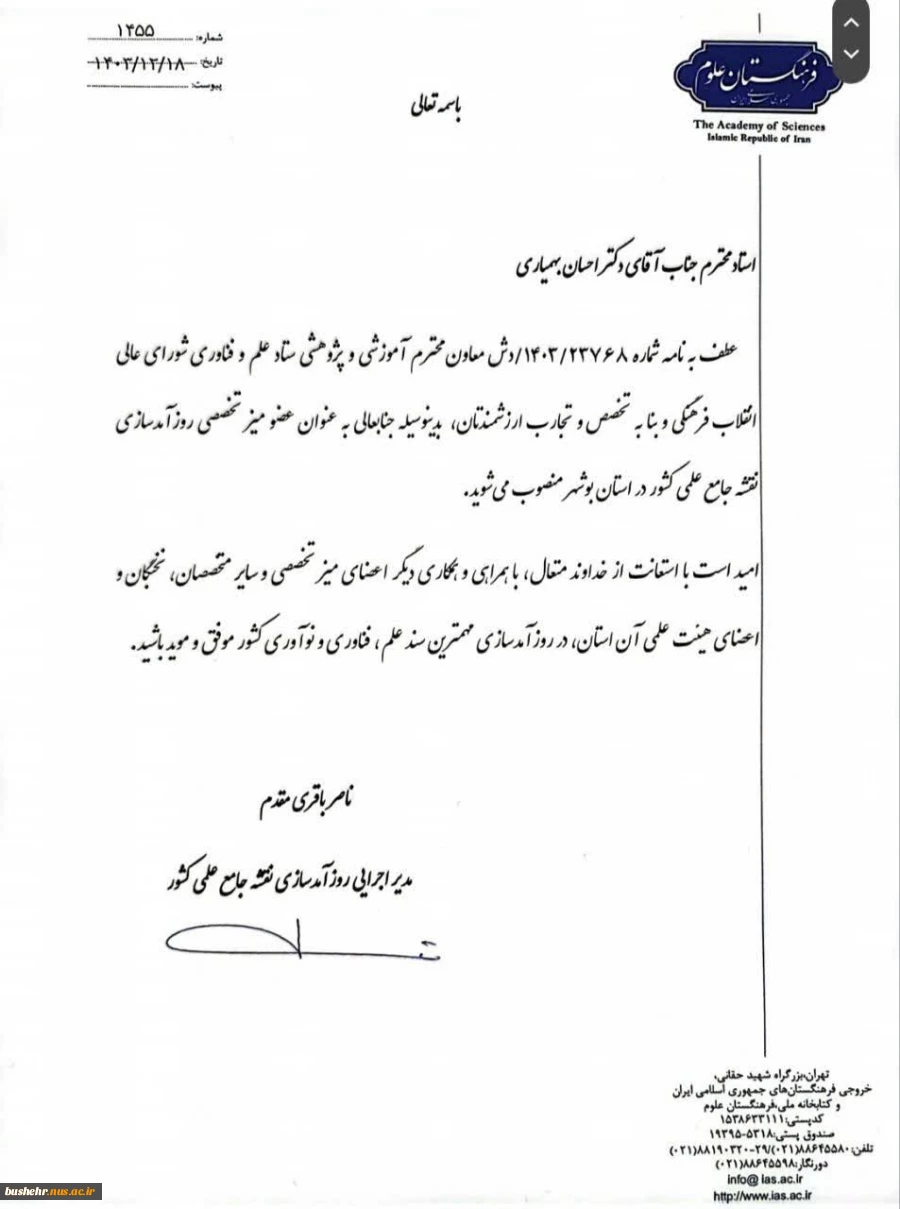 شماره: ۱۴۵۵
تاریخ: ۱۴۰۳/۱۲/۱۸
پیوست:
فرهنگستان علوم
جمهوری اسلامی ایران
The Academy of Sciences
Islamic Republic of Iran
باسمه تعالی
استاد محترم جناب آقای دکتر احسان بهمیاری
عطف به نامه شماره ۱۴۰۳/۲۳۷۶۸/دش معاون محترم آموزشی و پژوهشی ستاد علم و فناوری شورای عالی
انقلاب فرهنگی و بنا به تخصص و تجارب ارزشمندتان، بدینوسیله جنابعالی به عنوان عضو میز تخصصی روزآمدسازی
نقشه جامع علمی کشور در استان بوشهر منصوب می‌شوید.
امید است با استعانت از خداوند متعال، با همراهی و همکاری دیگر اعضای میز تخصصی و سایر متخصصان، نخبگان و
اعضای هیئت علمی آن استان، در روزآمدسازی مهمترین سند علم، فناوری و نوآوری کشور موفق و موید باشید.
ناصر باقری مقدم
مدیر اجرایی روزآمدسازی نقشه جامع علمی کشور
تهران،بزرگراه شهید حقانی،
خروجی فرهنگستان‌های جمهوری اسلامی ایران
و کتابخانه ملی،فرهنگستان علوم
کدپستی:۱۵۳۸۶۳۳۱۱۱
صندوق پستی:۵۳۱۸-۱۹۳۹۵
تلفن:۸۸۶۴۵۵۸۰(۰۲۱)/۲۹-۸۸۱۹۰۳۲۰(۰۲۱)
دورنگار:۸۸۶۴۵۵۹۸(۰۲۱)
info@ ias.ac.ir
http://www.ias.ac.ir
bushehr.nus.ac.ir